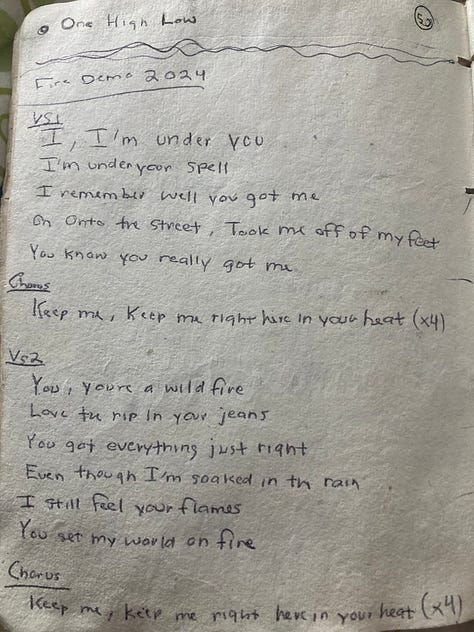 One High Low
Fire Demo 2024
VS1
I, I'm under you
I'm under your spell
I remember well you got me
on onto the street, Took me off of my feet
You know you really got me
Chorus
Keep me, Keep me right here in your heat (x4)
VS2
You, you're a wild fire
Love the rip in your jeans
You got everything just right
Even though I'm soaked in th rain
I still feel your flames
You set my world on fire
Chorus
Keep me, keep me right here in your heat (x4)